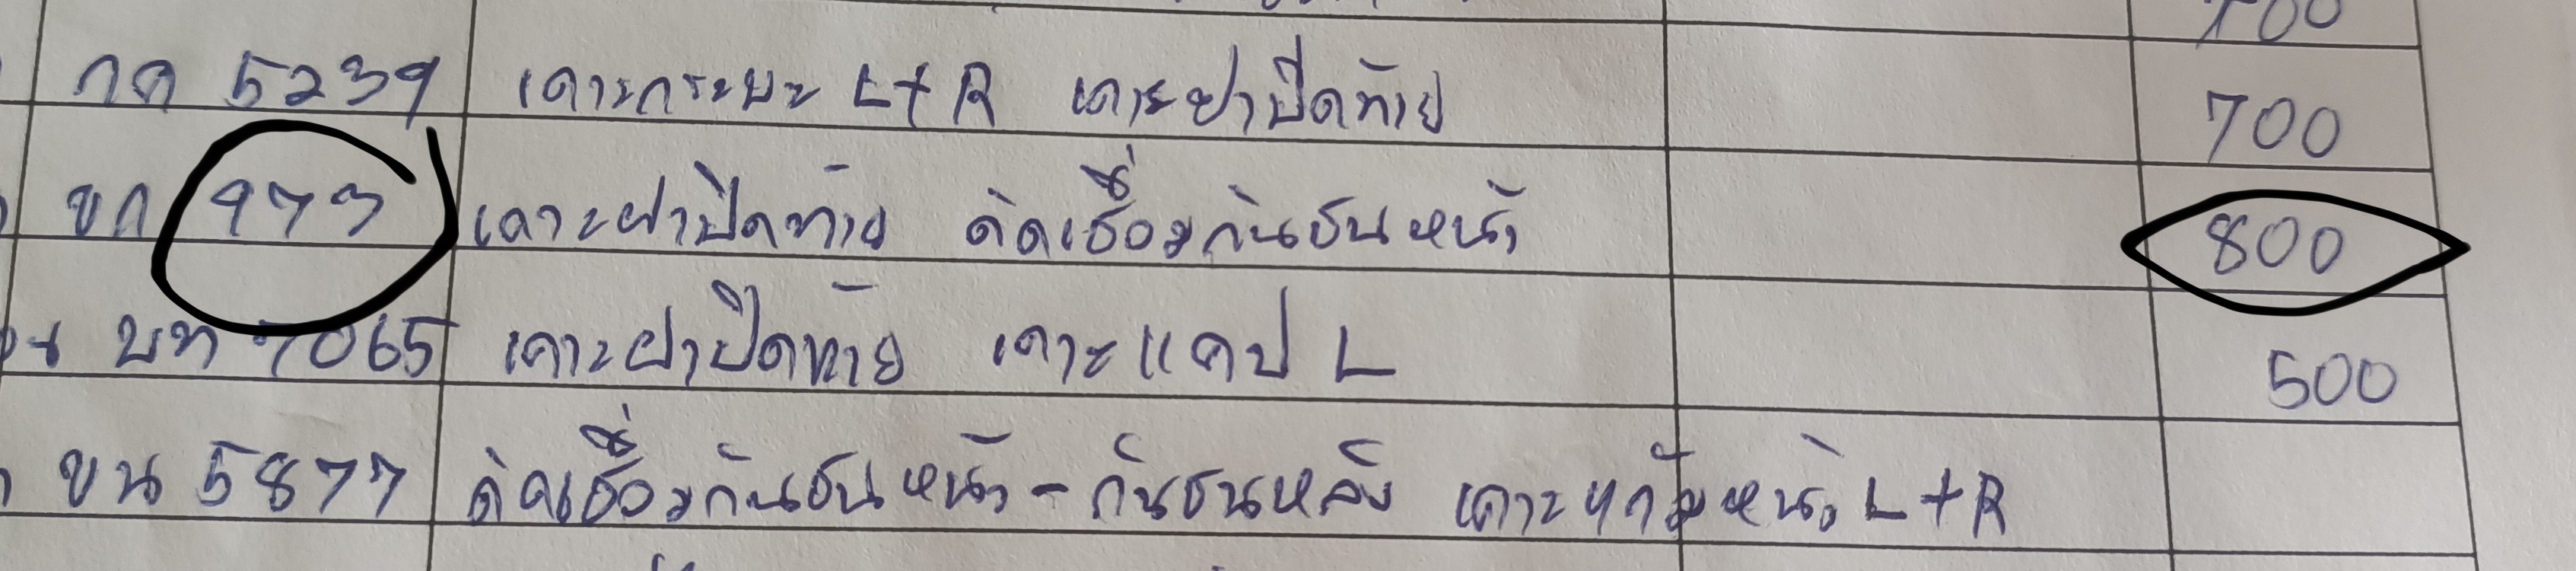 700
กค 5239 เคาะกระบะ L+R เคาะฝาปิดท้าย 700
ขก 977 เคาะฝาปิดท้าย ดัดเชื่อมกันชนหน้า 800
บท 7065 เคาะฝาปิดท้าย เคาะแคป L 500
ขน 5877 ดัดเชื่อมกันชนหน้า - กันชนหลัง เคาะแก้มหน้า L+R